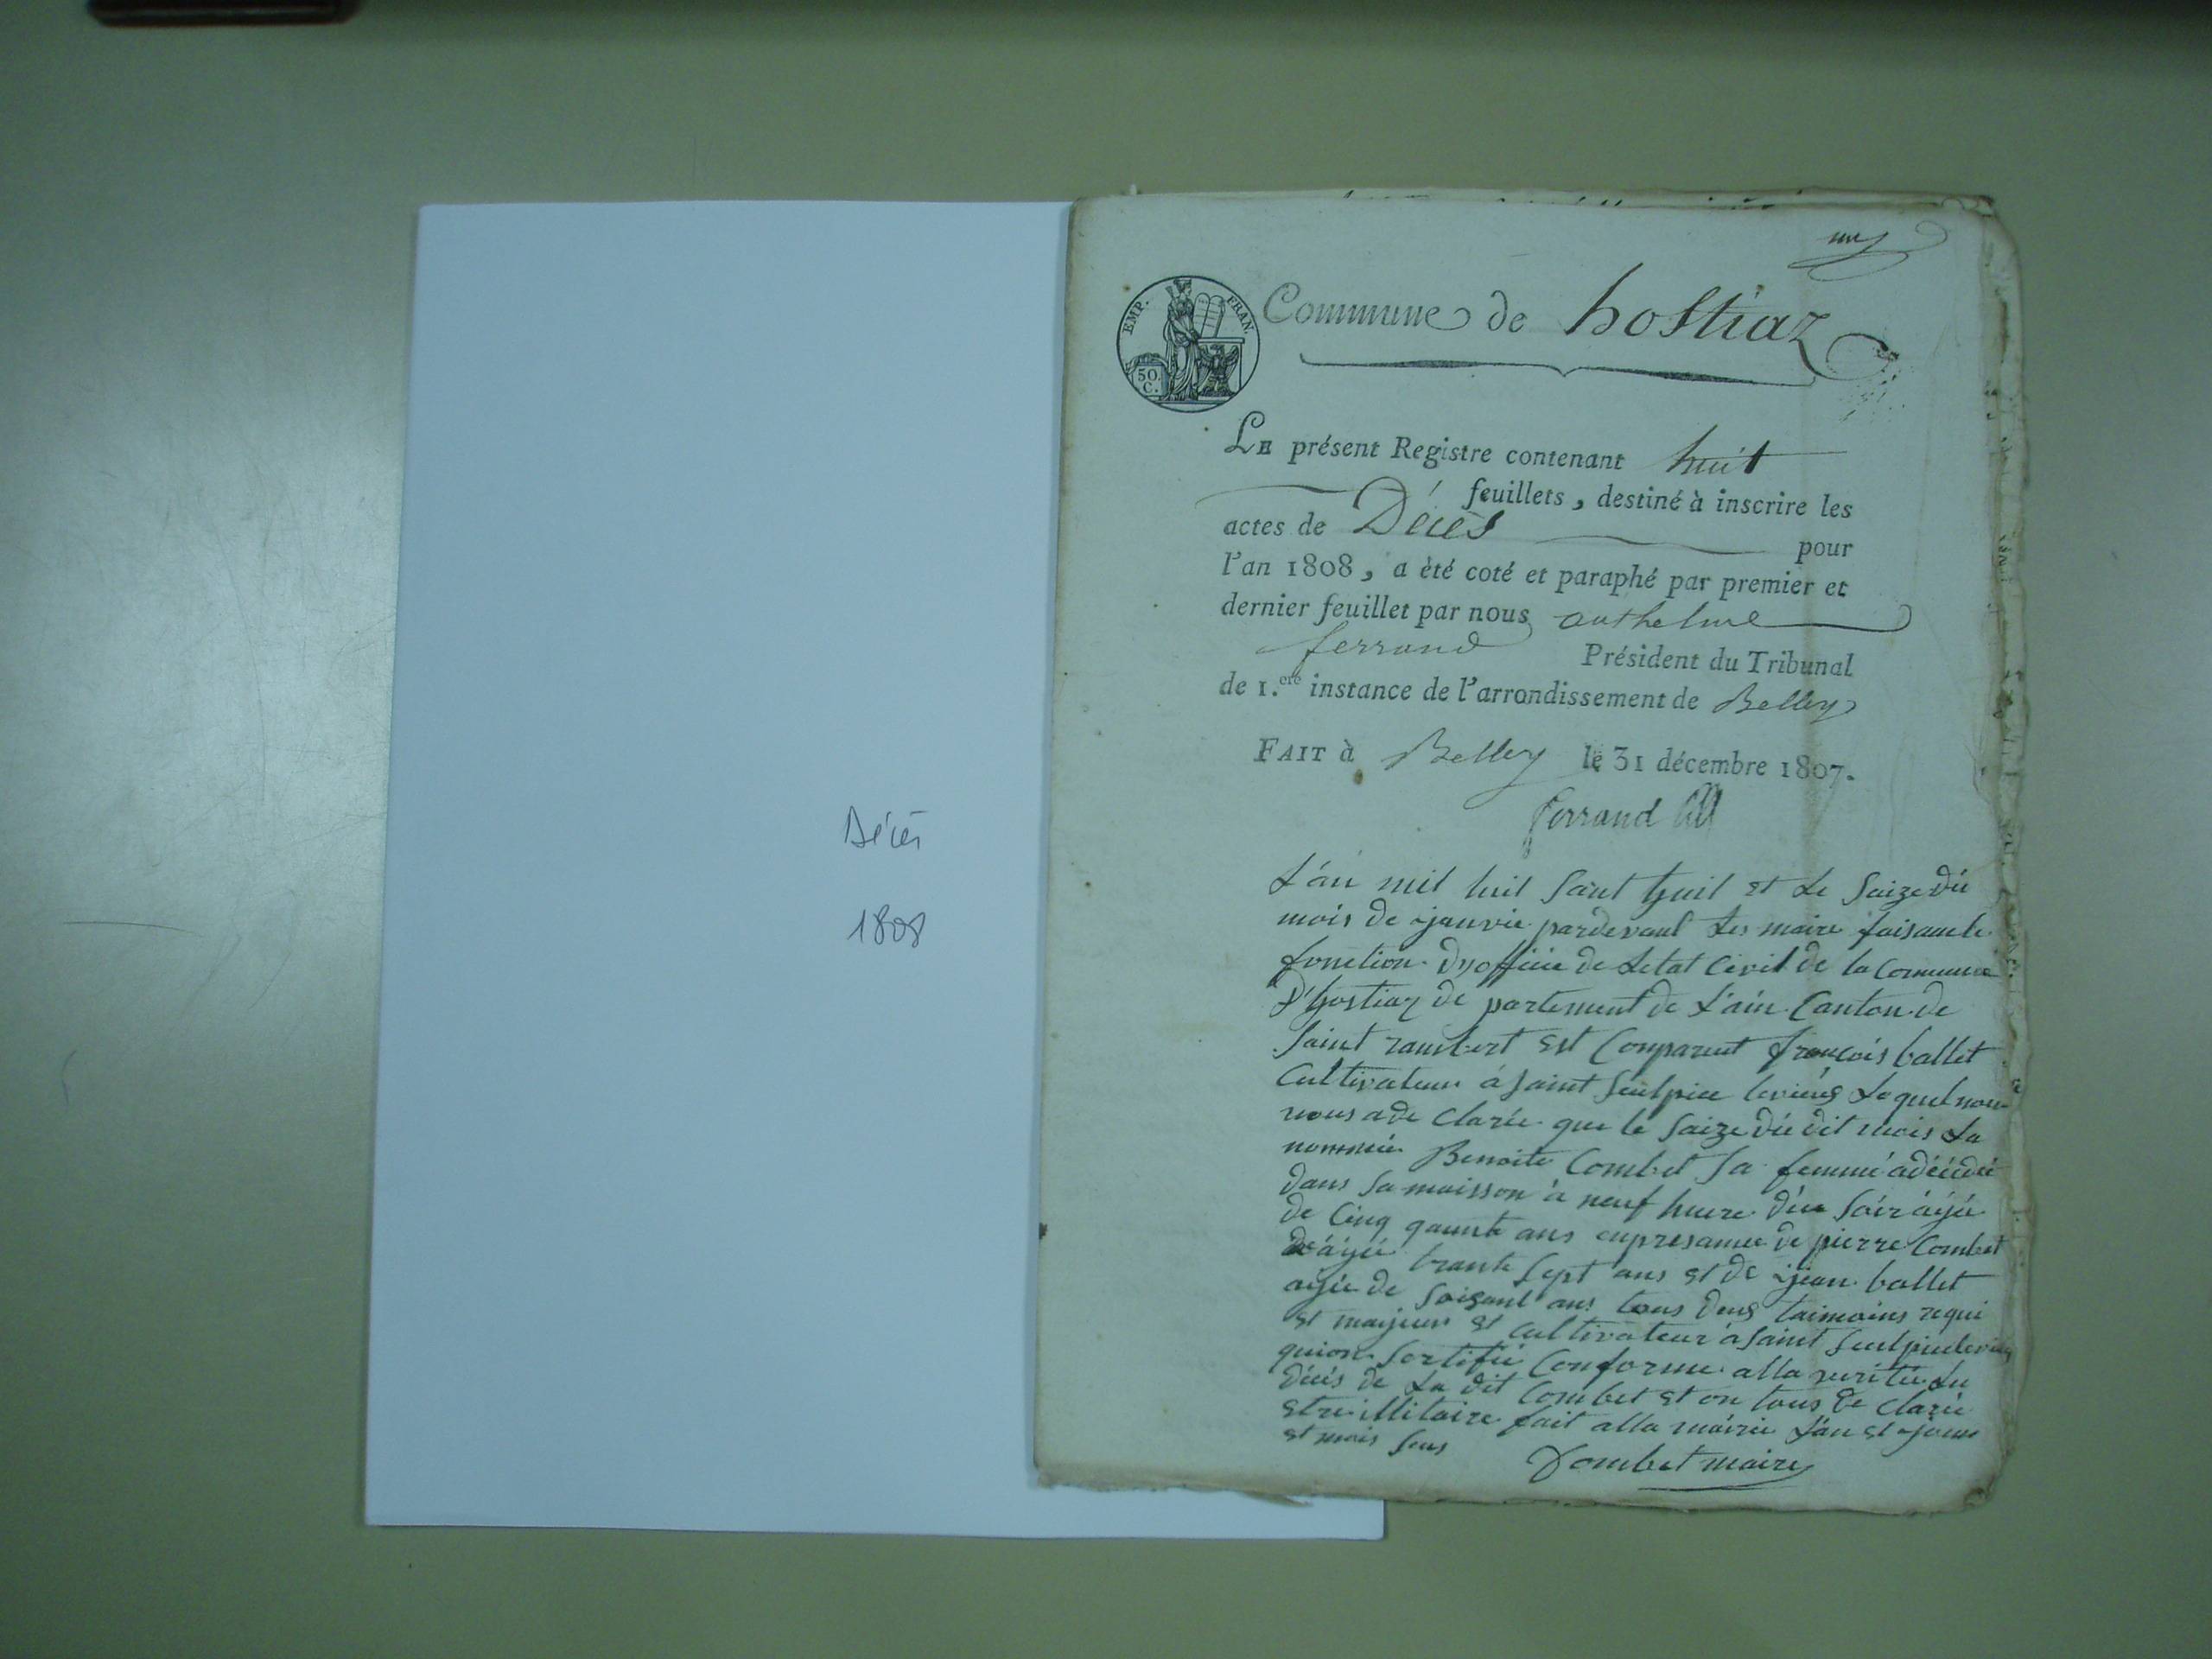 Décès
1808
un
EMP. FRAN.
50.
C.
Commune de hostiaz
LE présent Registre contenant huit
feuillets, destiné à inscrire les
actes de Décès pour
l'an 1808, a été coté et paraphé par premier et
dernier feuillet par nous anthelme
ferrand Président du Tribunal
de 1.ere instance de l'arrondissement de Belley
FAIT à Belley le 31 décembre 1807.
ferrand
L'an mil huit sant huit et le saize du
mois de janvie pardevant les maire faisant le
fonction dyofficie de letat Civil de la Commune
d'hostiaz de partement de l'ain Canton de
saint rambert est Comparent françois ballet
Cultivateur à saint seulpice levieus lequel nou
nous a de clarée que le saize du dit mois la
nommée Benoite Combet sa femme a décédé
dans sa maisson à neuf heure du soir ajée
de Cinq quante ans en presance de pierre Combet
ajée trante sept ans et de jean ballet
ajée de soisant ans tous deus taimoins requi
et majeur et Cultivateur à saint seulpice levieus
qui on sertifié Conforme alla veritée du
décés de la dit Combet et on tous de clarée
etre illitaire fait alla mairie l'an et jour
et mois sus
Combet maire